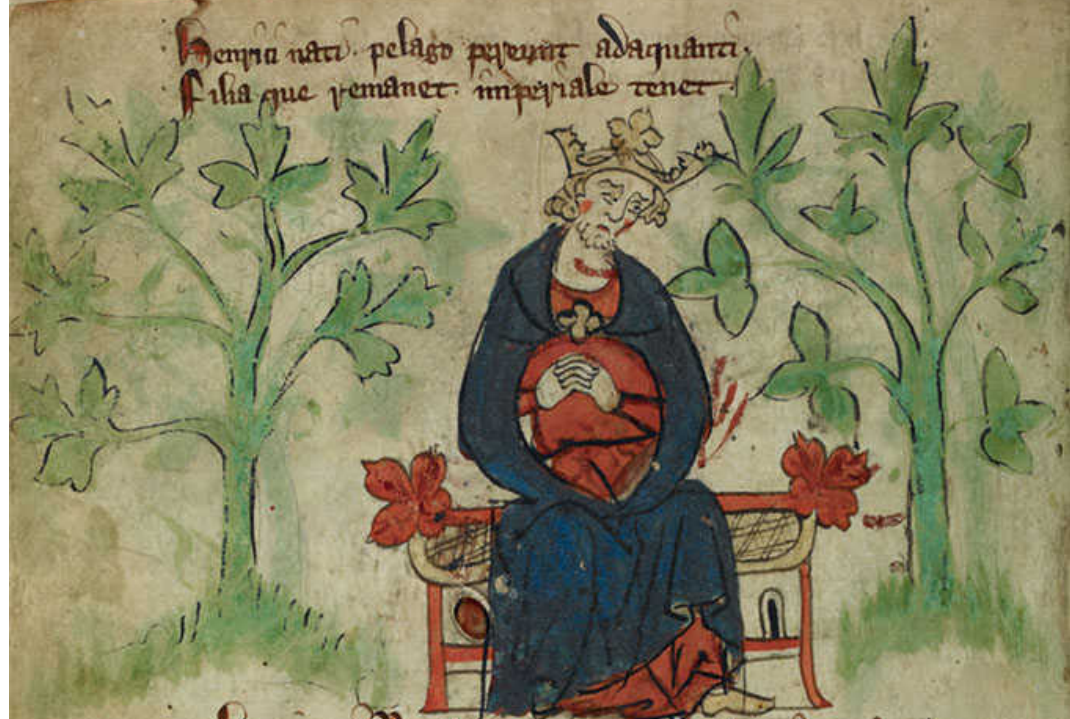 Henrici nati . pelago pereunt adaquanti .
Filia que remanet . imperiale tenet